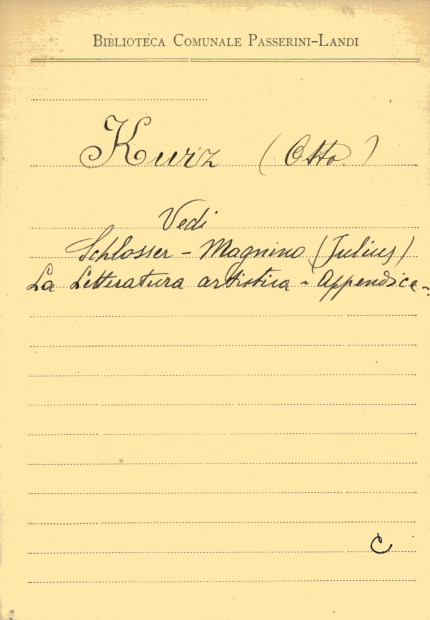 BIBLIOTECA COMUNALE PASSERINI-LANDI
Kurz (Otto)
Vedi
Schlosser - Magnino (Julius)
La Letteratura artistica - Appendice -
C